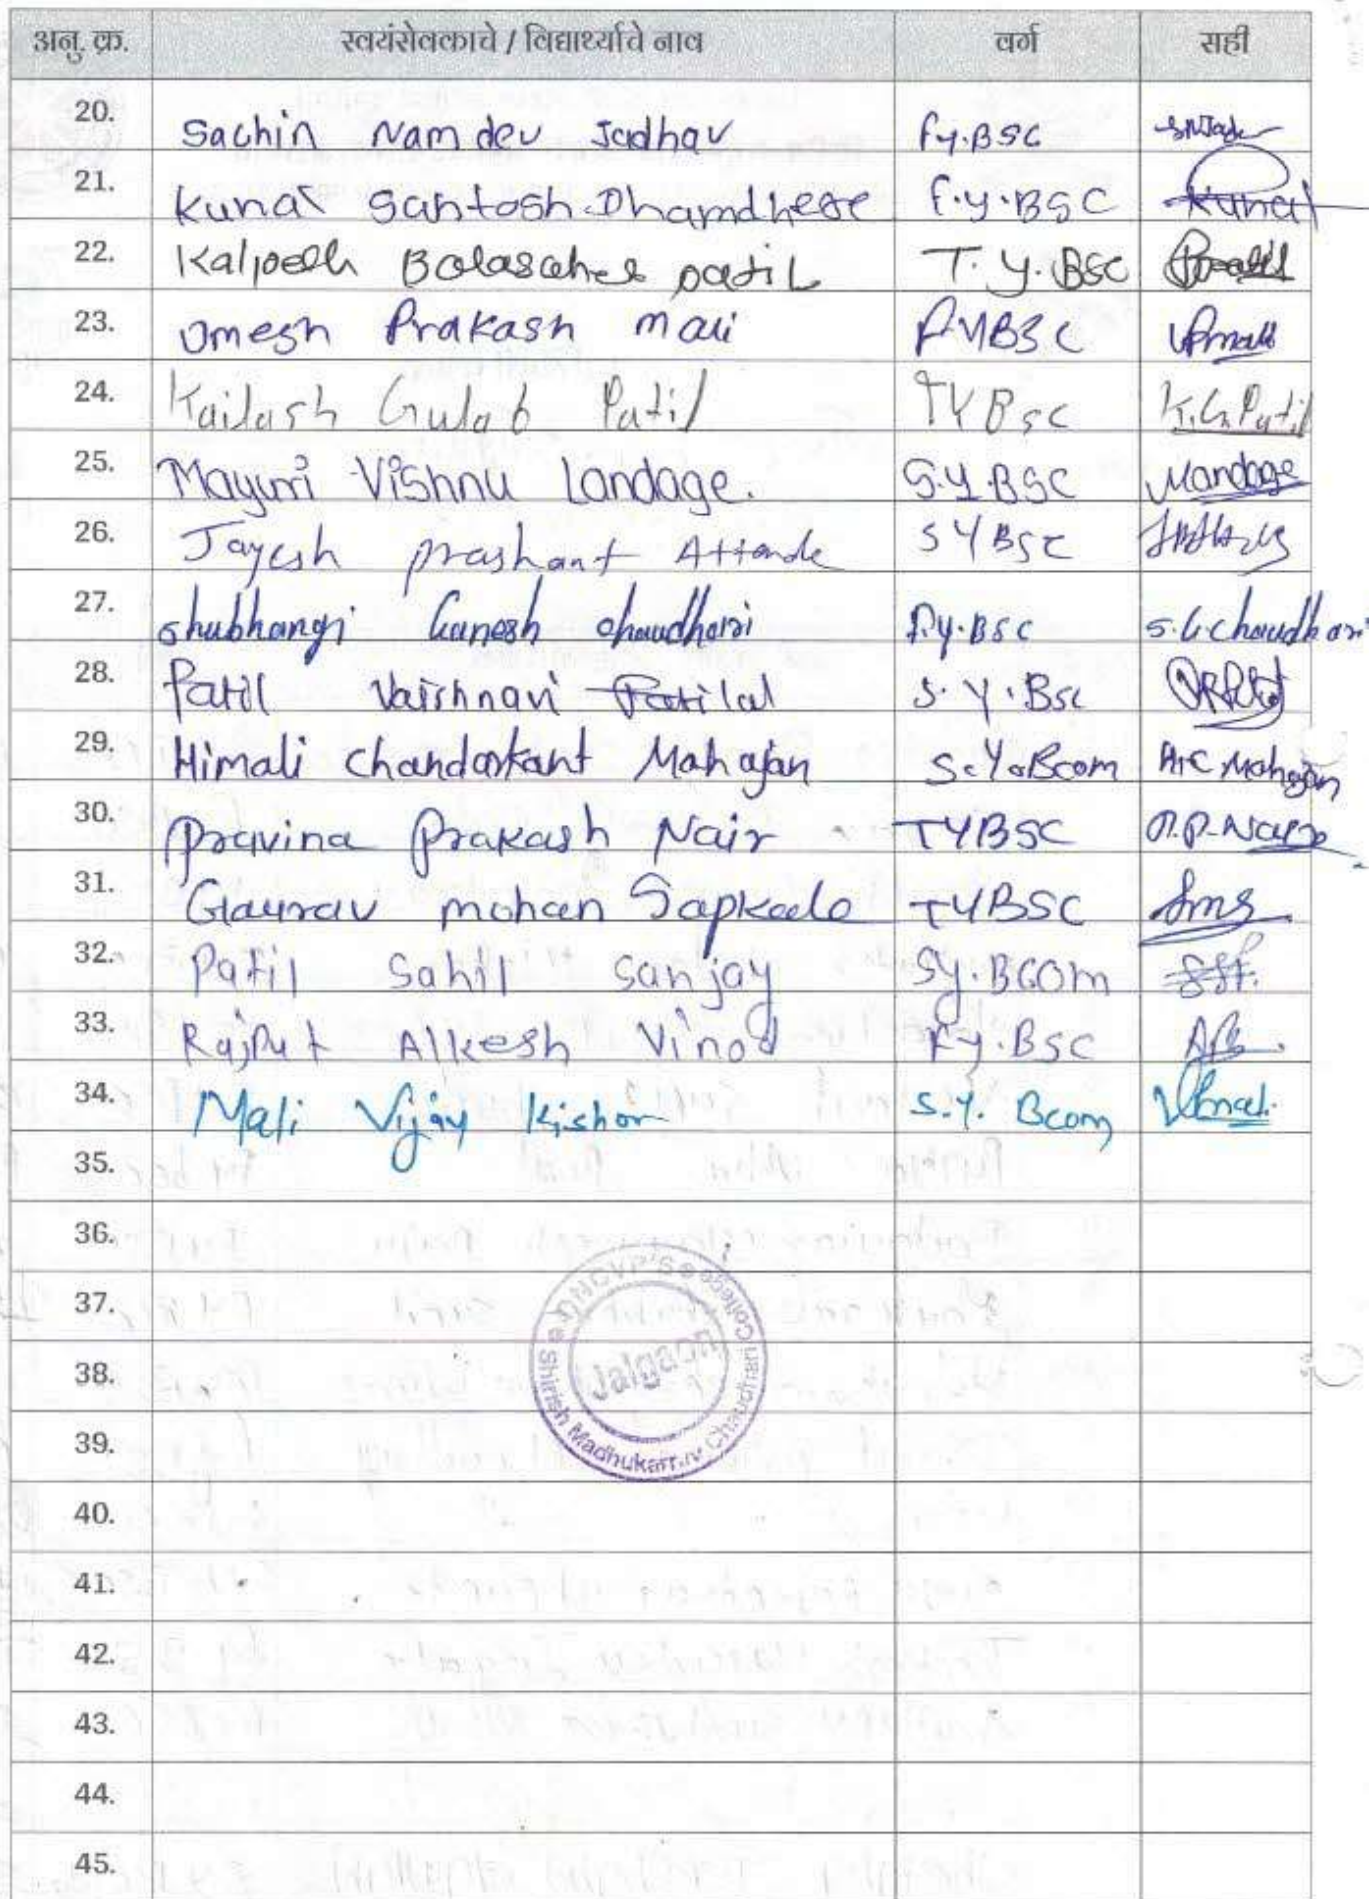 अनु. क्र. स्वयंसेवकाचे / विद्यार्थ्याचे नाव वर्ग सही
20. Sachin Namdev Jadhav F.y.BSC
21. Kunal Santosh Dhamdhere F.y.BSC Kunal
22. Kalpesh Balasaheb patil T.Y.BSC
23. Umesh Prakash mali F.YBSC UPmali
24. Kailash Gulab Patil TYBSC K.G.Patil
25. Mayuri Vishnu Landage. S.Y.BSC Mandage
26. Jayesh prashant Attarde SYBSC
27. shubhangi Ganesh chaudhari F.y.BSC S.G.chaudhari
28. Patil Vaishnavi S.Y.Bsc
29. Himali Chandrakant Mahajan S.Y.Bcom H.C Mahajan
30. Pravina Prakash Nair TYBSC P.P.Nair
31. Gaurav mohan Sapkale TYBSC
32. Patil Sahil Sanjay Sy.BCOM
33. Rajput Alkesh Vinod F.y.BSC
34. Mali Vijay Kishor S.Y. Bcom
35.
36.
37.
38.
39.
40.
41.
42.
43.
44.
45.
DNCVP'S
College
Shirish Madhukarrav Chaudhari
Jalgaon